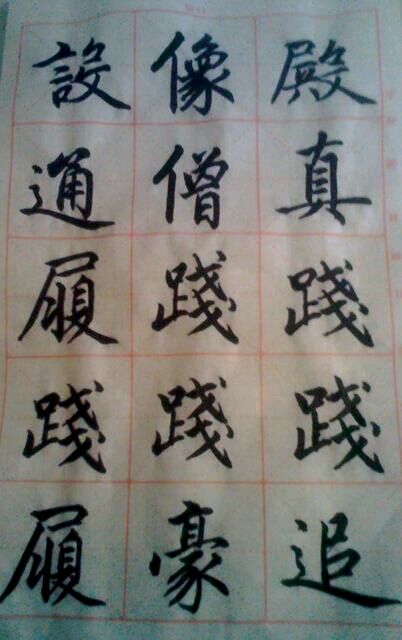 設像殿
通僧真
履踐踐
踐踐踐
履豪追